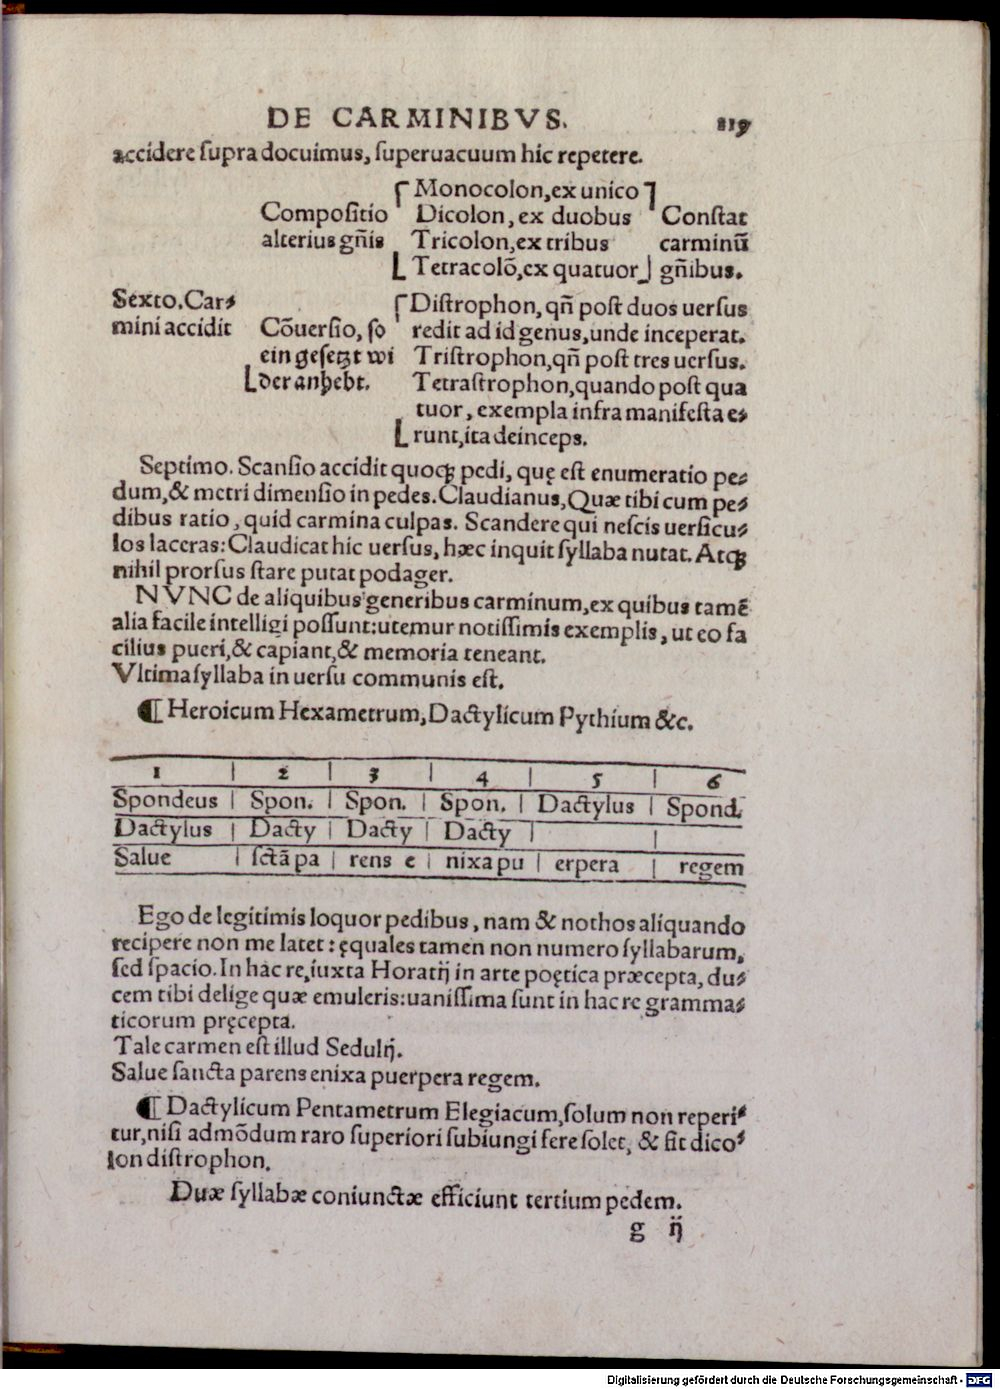 DE CARMINIBVS. 119
accidere ſupra docuimus, ſuperuacuum hic repetere.
Monocolon, ex unico
Compoſitio Dicolon, ex duobus Conſtat
alterius gñis Tricolon, ex tribus carminũ
Tetracolõ, ex quatuor gñibus.
Sexto. Car⸗ Diſtrophon, qñ poſt duos uerſus
mini accidit Cõuerſio, ſo redit ad id genus, unde inceperat.
ein geſetzt wi Triſtrophon, qñ poſt tres uerſus.
der anhebt. Tetraſtrophon, quando poſt qua
tuor, exempla infra manifeſta e⸗
runt, ita deinceps.
Septimo. Scanſio accidit quoqꝫ pedi, quę eſt enumeratio pe⸗
dum, & metri dimenſio in pedes. Claudianus, Quæ tibi cum pe⸗
dibus ratio, quid carmina culpas. Scandere qui neſcis uerſicu⸗
los laceras: Claudicat hic uerſus, hæc inquit ſyllaba nutat. Atqꝫ
nihil prorſus ſtare putat podager.
NVNC de aliquibus generibus carminum, ex quibus tamẽ
alia facile intelligi poſſunt: utemur notiſſimis exemplis, ut eo fa
cilius pueri, & capiant, & memoria teneant.
Vltima ſyllaba in uerſu communis eſt.
¶ Heroicum Hexametrum, Dactylicum Pythium &c.
1 | 2 | 3 | 4 | 5 | 6
Spondeus | Spon. | Spon. | Spon. | Dactylus | Spond.
Dactylus | Dacty | Dacty | Dacty | |
Salue | ſctã pa | rens e | nixa pu | erpera | regem
Ego de legitimis loquor pedibus, nam & nothos aliquando
recipere non me latet: ęquales tamen non numero ſyllabarum,
ſed ſpacio. In hac re, iuxta Horatĳ in arte poętica præcepta, du⸗
cem tibi delige quæ emuleris: uaniſſima ſunt in hac re gramma⸗
ticorum pręcepta.
Tale carmen eſt illud Sedulĳ.
Salue ſancta parens enixa puerpera regem.
¶ Dactylicum Pentametrum Elegiacum, ſolum non reperi⸗
tur, niſi admõdum raro ſuperiori ſubiungi fere ſolet, & fit dico⸗
lon diſtrophon.
Duæ ſyllabæ coniunctæ efficiunt tertium pedem.
g ĳ
Digitalisierung gefördert durch die Deutsche Forschungsgemeinschaft - DFG